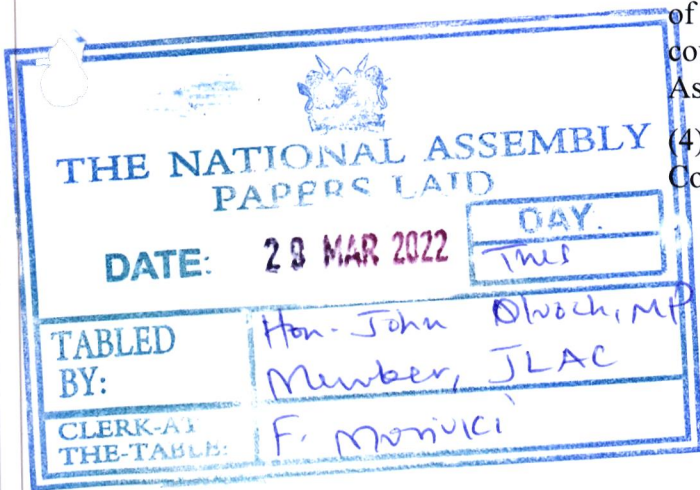 of
THE NATIONAL ASSEMBLY
PAPERS LAID
(4)
Co
DATE: 29 MAR 2022
DAY:
Tues
TABLED BY:
Hon. John Oluoch, MP
Member, JLAC
CLERK-AT
THE-TABLE:
F.